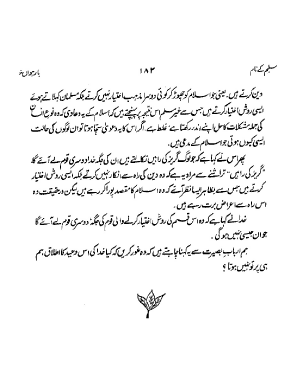 سلیم کے نام ۱۸۲
دین کرتے ہیں۔ یعنی جو اسلام کو چھوڑ کر کوئی دوسرا مذہب اختیار نہیں کرتے بلکہ مسلمان کہلاتے ہوئے
ایسی روش اختیار کرتے ہیں جس سے غیر مسلم اس نتیجہ پر پہنچتے ہیں کہ اسلام کا یہ دعاوی کہ وہ نوع انسان
کی جملہ مشکلات کا حل اپنے اندر رکھتا ہے غلط ہے۔ اگر اس کا یہ دعویٰ سچا ہوتا تو ان لوگوں کی حالت
ایسی کیوں ہوتی جو اسلام کے مدعی ہیں۔
پھر اس نے کہا ہے کہ جو لوگ گریز کی راہیں نکالتے ہیں، ان کی جگہ خدا دوسری قوم لے آئے گا
"گریز کی راہیں" تراشنے سے مراد یہ ہے کہ وہ دین کی راہ سے انکار نہیں کرتے بلکہ ایسی روش اختیار
کرتے ہیں جس سے بظاہر ایسا نظر آئے کہ وہ اسلام کا مقصد پورا کر رہے ہیں لیکن درحقیقت وہ
اس راہ سے اعراض برت رہے ہیں۔
خدا نے کہا ہے کہ وہ اس قسم کی روش اختیار کرنے والی قوم کی جگہ دوسری قوم لے آئے گا
جو ان جیسی نہیں ہوگی۔
ہم ارباب بصیرت سے یہ کہنا چاہتے ہیں کہ وہ غور کریں کہ کیا خدا کی اس وعید کا اطلاق ہم
ہی پر تو نہیں ہوتا؟